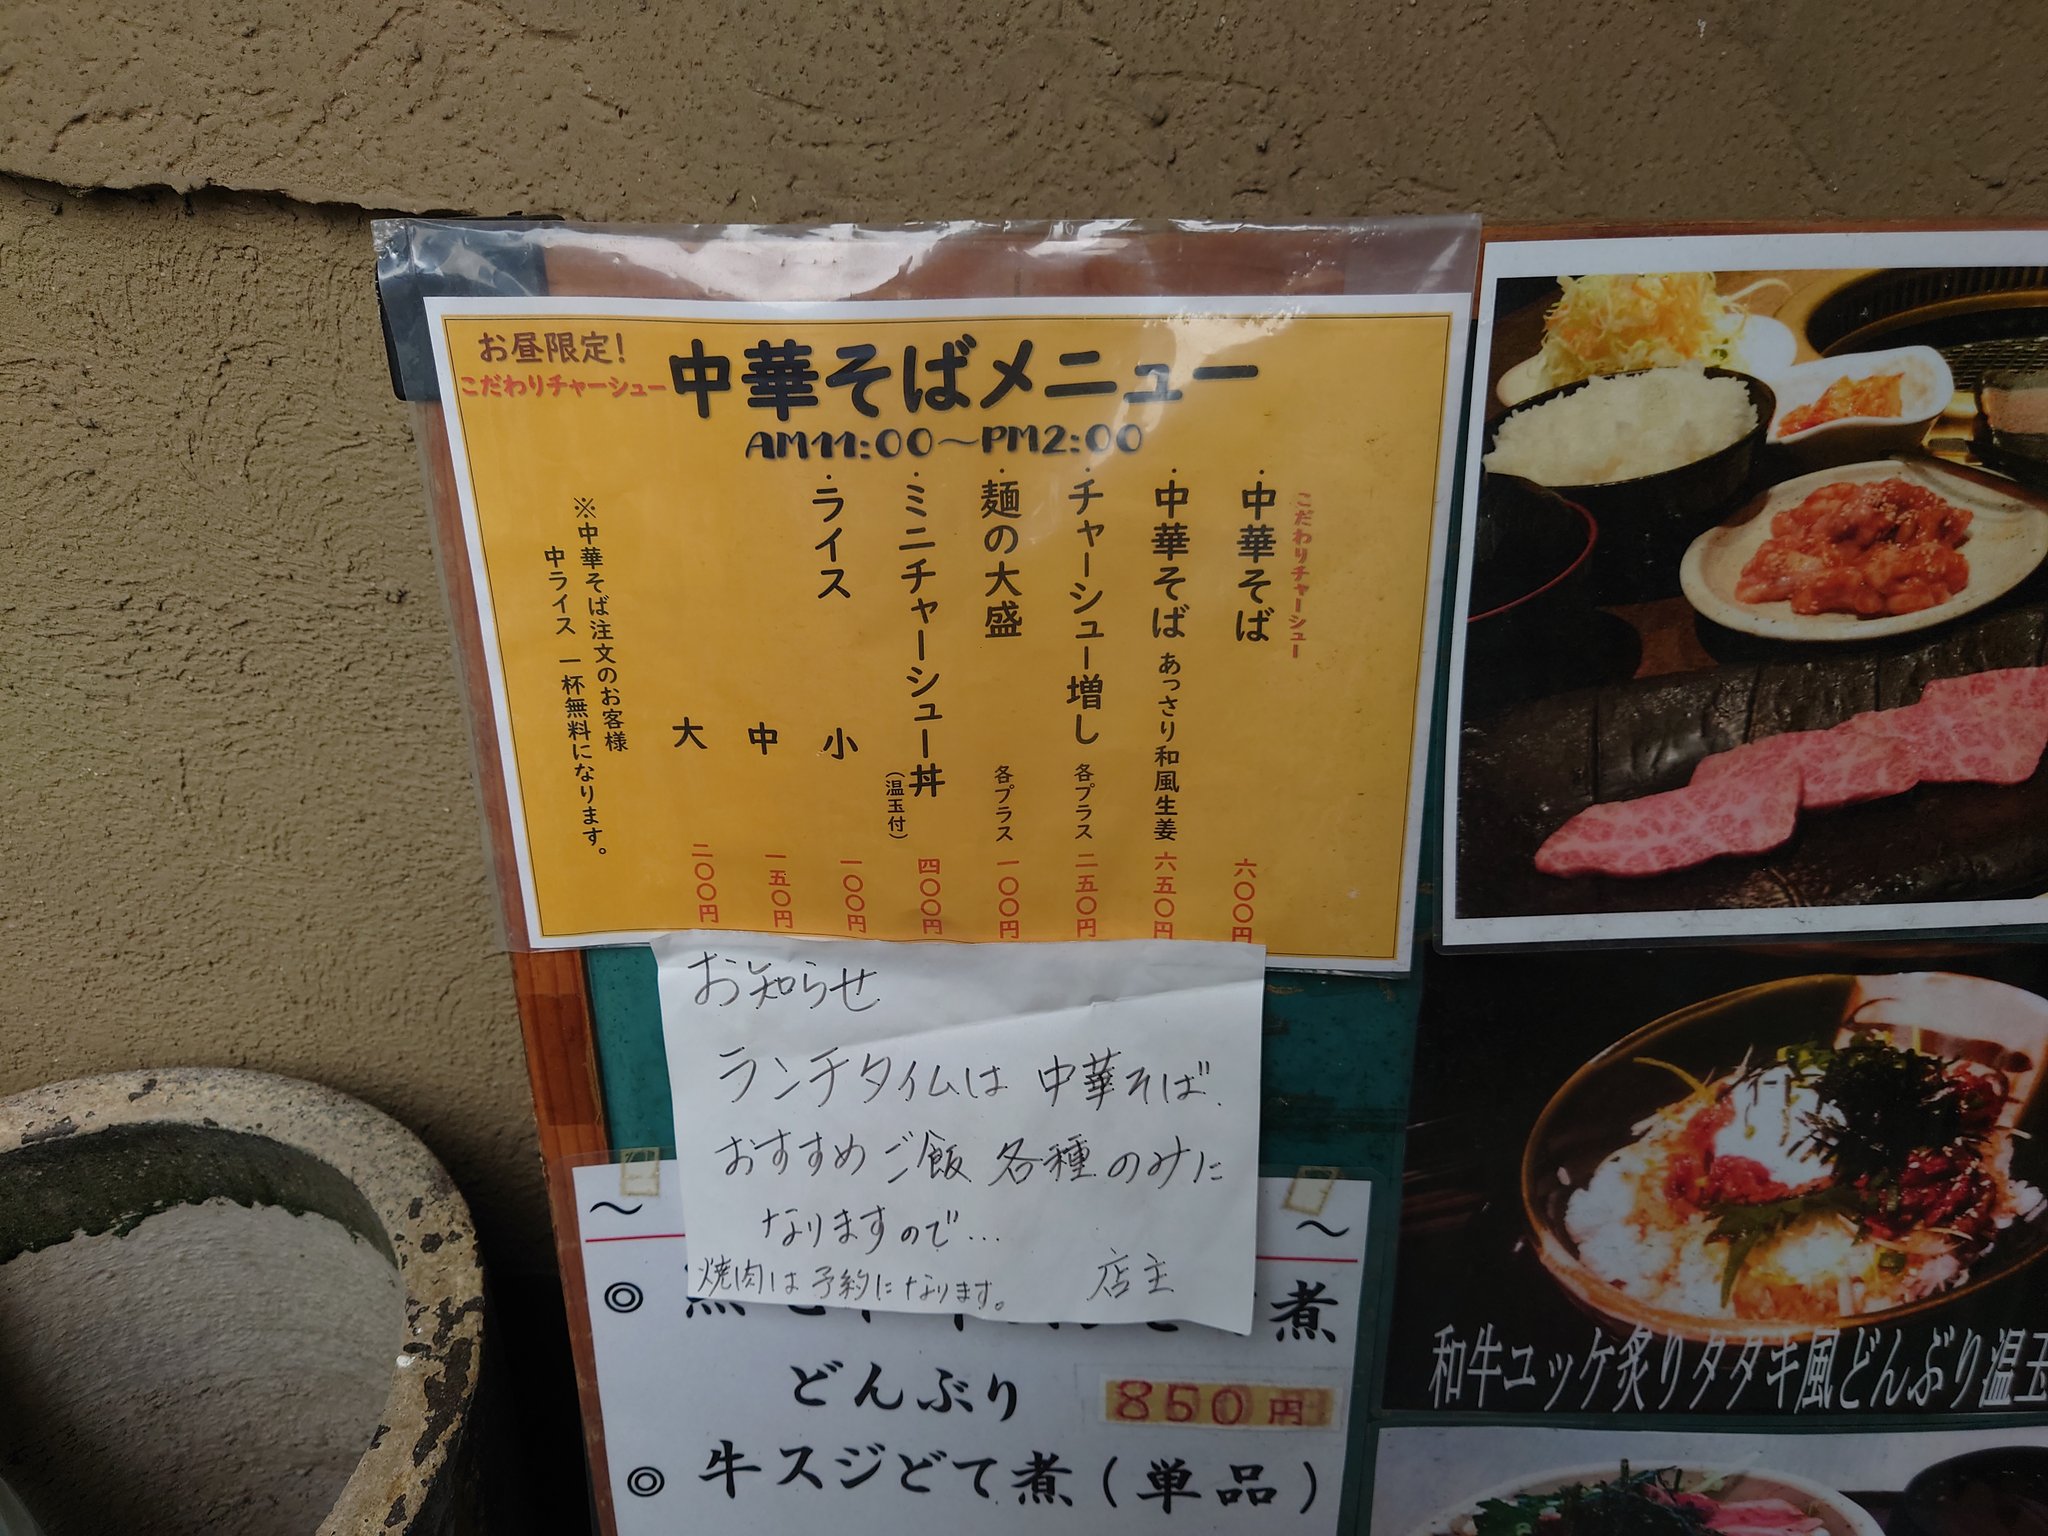 お昼限定!
こだわりチャーシュー
中華そばメニュー
AM11:00〜PM2:00
こだわりチャーシュー
・中華そば 六〇〇円
・中華そば あっさり和風生姜 六五〇円
・チャーシュー増し 各プラス 二五〇円
・麺の大盛 各プラス 一〇〇円
・ミニチャーシュー丼 (温玉付) 四〇〇円
・ライス 小 一〇〇円
中 一五〇円
大 二〇〇円
※中華そば注文のお客様
中ライス 一杯無料になります。
お知らせ
ランチタイムは 中華そば、
おすすめご飯 各種のみに
なりますので…
焼肉は予約になります。 店主
〜 〜
◎ 煮
どんぶり 850円
◎ 牛スジどて煮(単品)
和牛ユッケ炙りタタキ風どんぶり温玉